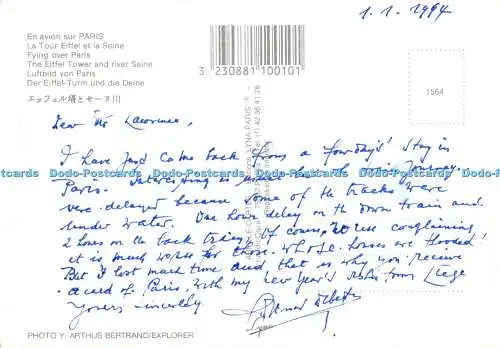 1.1.1994
En avion sur PARIS
La Tour Eiffel et la Seine
Fying over Paris
The Eiffel Tower and river Seine
Luftbild von Paris
Der Eiffel-Turm und die Deine
エッフェル塔とセーヌ川
3 230881 100101
1564
Dear Mr Lawrence,
I have just come back from a fewdays' stay in
Paris. Interesting is that the train journey
were delayed because some of the tracks were
under water. One hour delay on the down train and
2 hours on the back trip. Of course, no use complaining
it is much worse for those whose houses are flooded!
But I lost much time and, that is why you receive
a card of Paris, with my New Year's wishes from Liege
Yours sincerely
PHOTO Y. ARTHUS BERTRAND/EXPLORER
Dodo-Postcards Dodo-Postcards Dodo-Postcards Dodo-Postcards Dodo-Postcards Dodo-Postcards